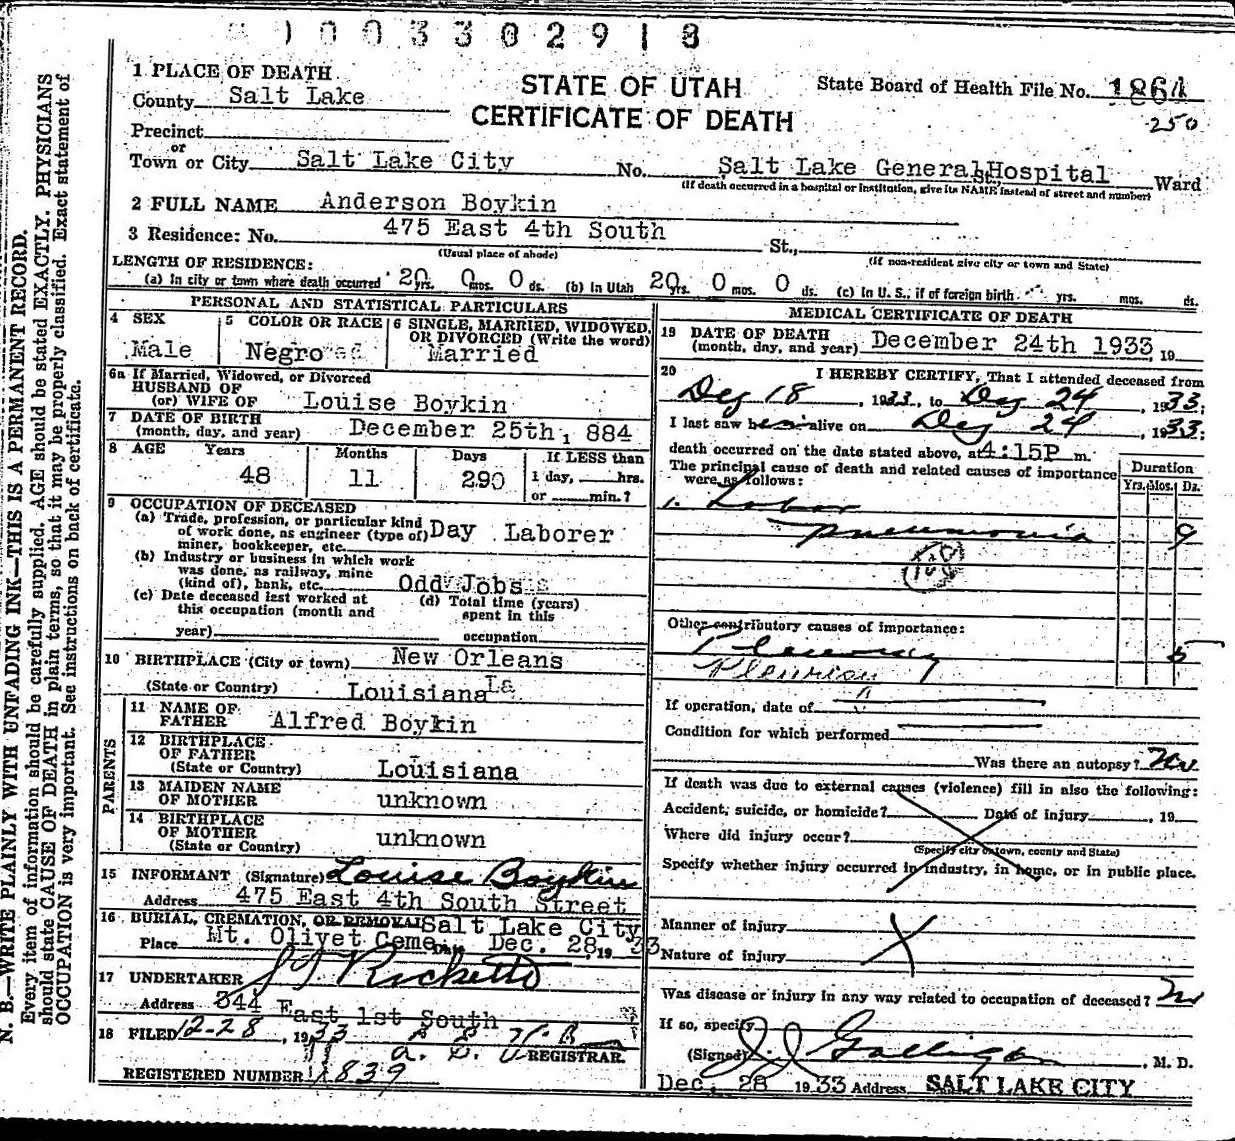 1003302918
1 PLACE OF DEATH
STATE OF UTAH
CERTIFICATE OF DEATH
State Board of Health File No. 1864
250
County Salt Lake
Precinct
or
Town or City Salt Lake City No. Salt Lake General Hospital St., Ward
(If death occurred in a hospital or institution, give its NAME instead of street and number)
2 FULL NAME Anderson Boykin
3 Residence: No. 475 East 4th South St.,
(Usual place of abode) (If non-resident give city or town and State)
LENGTH OF RESIDENCE:
(a) In city or town where death occurred 20 yrs. 0 mos. 0 ds. (b) In Utah 20 yrs. 0 mos. 0 ds. (c) In U. S., if of foreign birth yrs. mos. ds.
PERSONAL AND STATISTICAL PARTICULARS
4 SEX
Male
5 COLOR OR RACE
Negro
6 SINGLE, MARRIED, WIDOWED,
OR DIVORCED (Write the word)
Married
6a If Married, Widowed, or Divorced
HUSBAND OF
(or) WIFE OF Louise Boykin
7 DATE OF BIRTH
(month, day, and year) December 25th, 884
8 AGE Years Months Days If LESS than
48 11 290 1 day, hrs.
or min.?
9 OCCUPATION OF DECEASED
(a) Trade, profession, or particular kind
of work done, as engineer (type of)
miner, bookkeeper, etc. Day Laborer
(b) Industry or business in which work
was done, as railway, mine
(kind of), bank, etc. Odd Jobs
(c) Date deceased last worked at
this occupation (month and
year)
(d) Total time (years)
spent in this
occupation
10 BIRTHPLACE (City or town) New Orleans
(State or Country) Louisiana La
PARENTS
11 NAME OF
FATHER Alfred Boykin
12 BIRTHPLACE
OF FATHER
(State or Country) Louisiana
13 MAIDEN NAME
OF MOTHER unknown
14 BIRTHPLACE
OF MOTHER
(State or Country) unknown
15 INFORMANT (Signature) Louise Boykin
Address 475 East 4th South Street
16 BURIAL, CREMATION, OR REMOVAL Salt Lake City
Place Mt. Olivet Ceme Date Dec. 28, 19 33
17 UNDERTAKER Ricketts
Address 344 East 1st South
18 FILED 12-28, 1933
REGISTRAR.
REGISTERED NUMBER 1839
MEDICAL CERTIFICATE OF DEATH
19 DATE OF DEATH
(month, day, and year) December 24th 1933, 19
20 I HEREBY CERTIFY, That I attended deceased from
Dec 18, 1933, to Dec 24, 1933;
I last saw him alive on Dec 24, 1933;
death occurred on the date stated above, at 4:15P m.
The principal cause of death and related causes of importance
were as follows:
Duration
Yrs. Mos. Ds.
1. Lobar
pneumonia 9
108
Other contributory causes of importance:
Pleurisy 5
If operation, date of
Condition for which performed
Was there an autopsy? No
If death was due to external causes (violence) fill in also the following:
Accident, suicide, or homicide? Date of injury , 19
Where did injury occur?
(Specify city or town, county and State)
Specify whether injury occurred in industry, in home, or in public place.
Manner of injury
Nature of injury
Was disease or injury in any way related to occupation of deceased? No
If so, specify
(Signed) J J Galligan, M. D.
Dec. 28 1933 Address SALT LAKE CITY
N. B.—WRITE PLAINLY WITH UNFADING INK—THIS IS A PERMANENT RECORD.
Every item of information should be carefully supplied. AGE should be stated EXACTLY. PHYSICIANS
should state CAUSE OF DEATH in plain terms, so that it may be properly classified. Exact statement of
OCCUPATION is very important. See instructions on back of certificate.